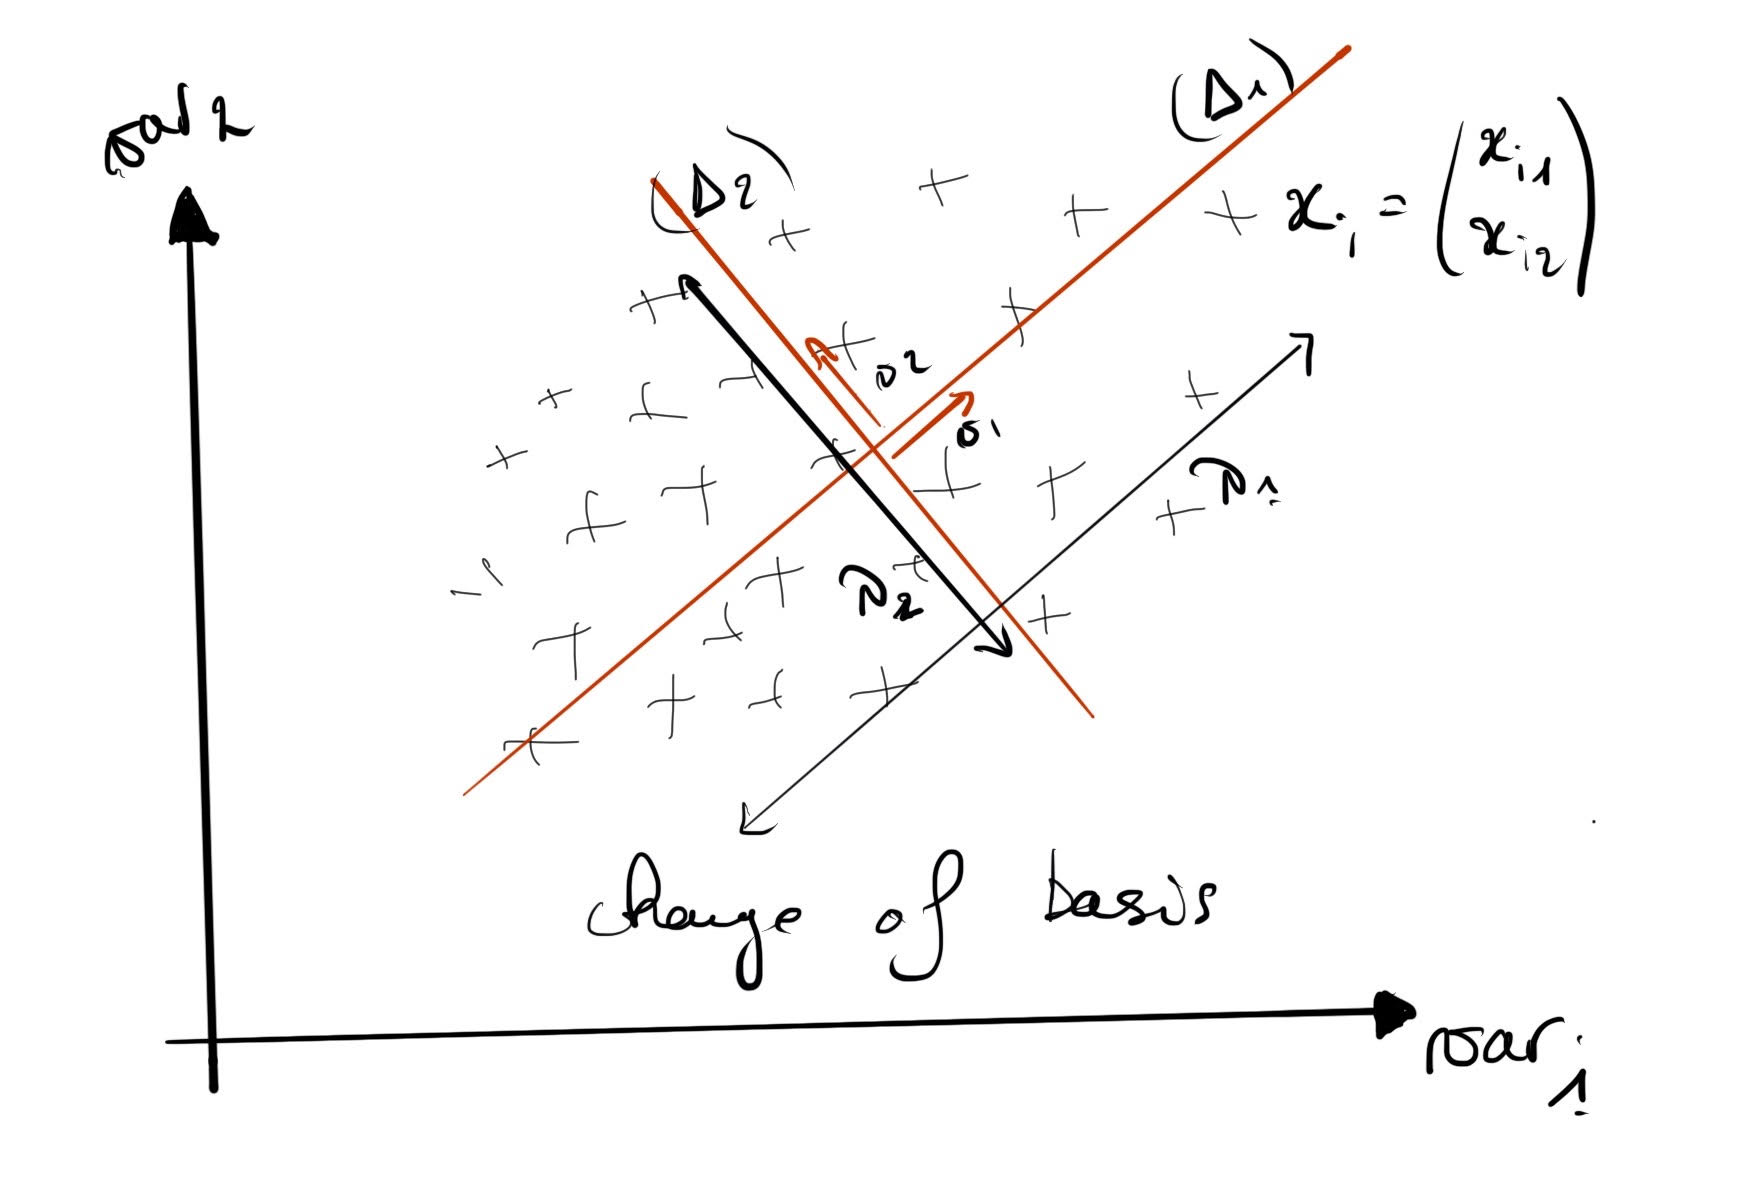 var 2
(Δ1)
(Δ2)
x_i = (x_i1
x_i2)
v2
v1
λ1
λ2
change of basis
var 1